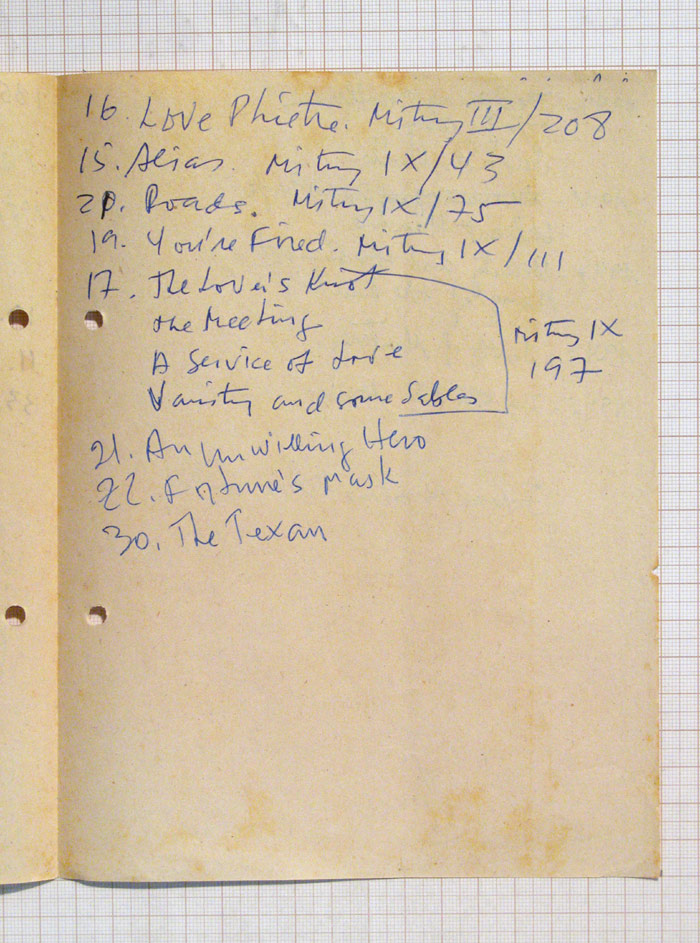 16. Love Philtre. Mitry III/208
15. Alias. Mitry IX/43
20. Roads. Mitry IX/75
19. You're Fired. Mitry IX/111
17. The Lover's Knot
The Meeting
A Service of Love
Vanity and some Sables
Mitry IX
197
21. An Unwilling Hero
22. Fortune's Mask
30. The Texan